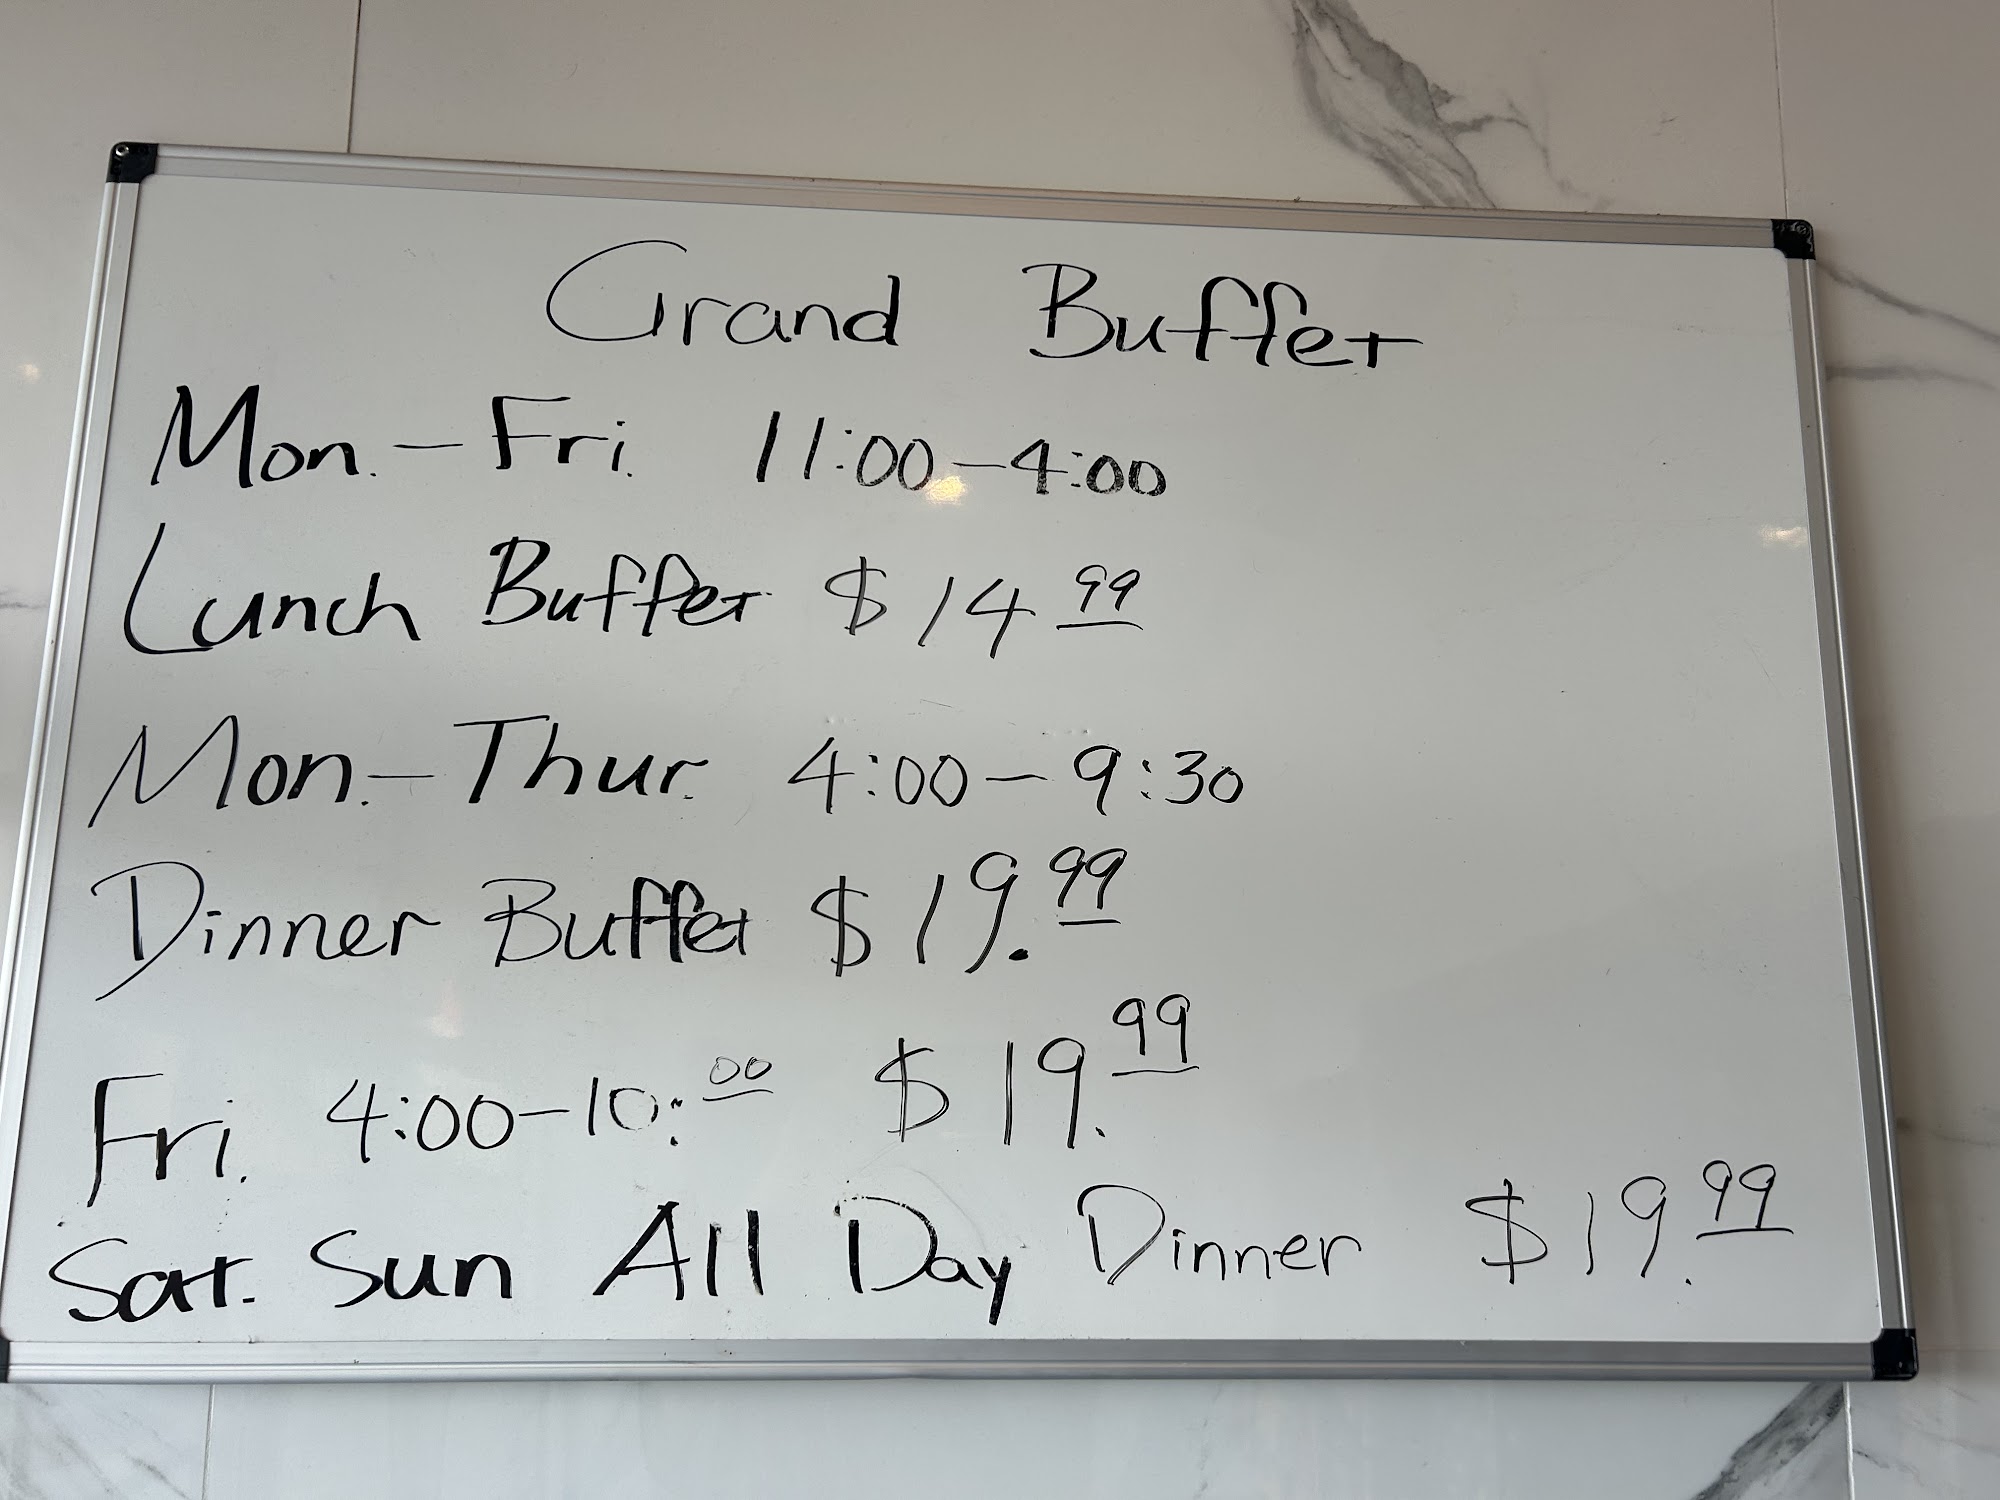 Grand Buffet
Mon. - Fri. 11:00-4:00
Lunch Buffet $14 99
Mon. - Thur. 4:00 - 9:30
Dinner Buffet $19.99
Fri. 4:00-10:00 $19.99
Sat. Sun All Day Dinner $19.99